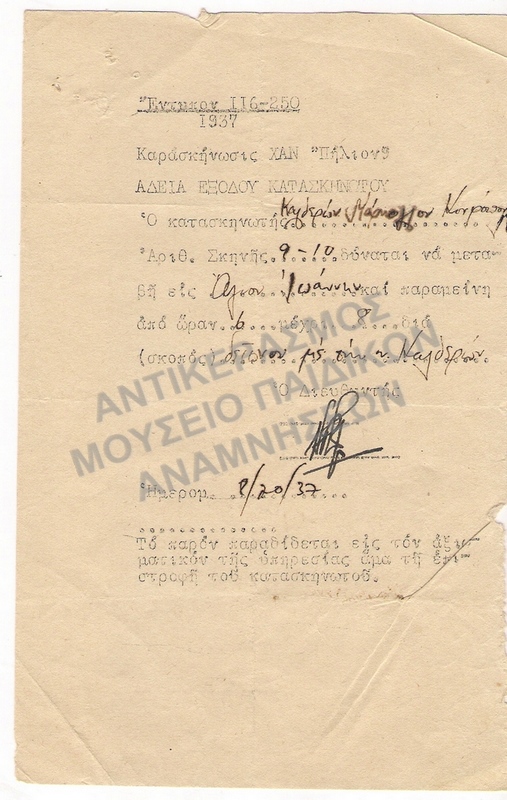 Ἔντυπον 116-250
1937
Καράσκήνωσις ΧΑΝ "Πήλιον"
ΑΔΕΙΑ ΕΞΟΔΟΥ ΚΑΤΑΣΚΗΝΩΤΟΥ
Ὁ κατασκηνωτής Καλδερών
Ἀριθ. Σκηνῆς. 9-10 δύναται νά μετα-
βῆ εἰς Ἅγιον Ἰωάννην καί παραμείνη
ἀπό ὥραν 6 μέχρι 8 διά
(σκοπός) δεῖπνον μέ τήν κ. Καλδερών.
Ὁ Διευθυντής
Ἡμερομ. 8/20/37
Τό παρόν παραδίδεται εἰς τόν ἀξιω-
ματικόν τῆς ὑπηρεσίας ἅμα τῆ ἐπι-
στροφῆ τοῦ κατασκηνωτοῦ.
ΑΝΤΙΚΕΡΑΣΜΟΣ
ΜΟΥΣΕΙΟ ΠΑΙΔΙΚΩΝ
ΑΝΑΜΝΗΣΕΩΝ